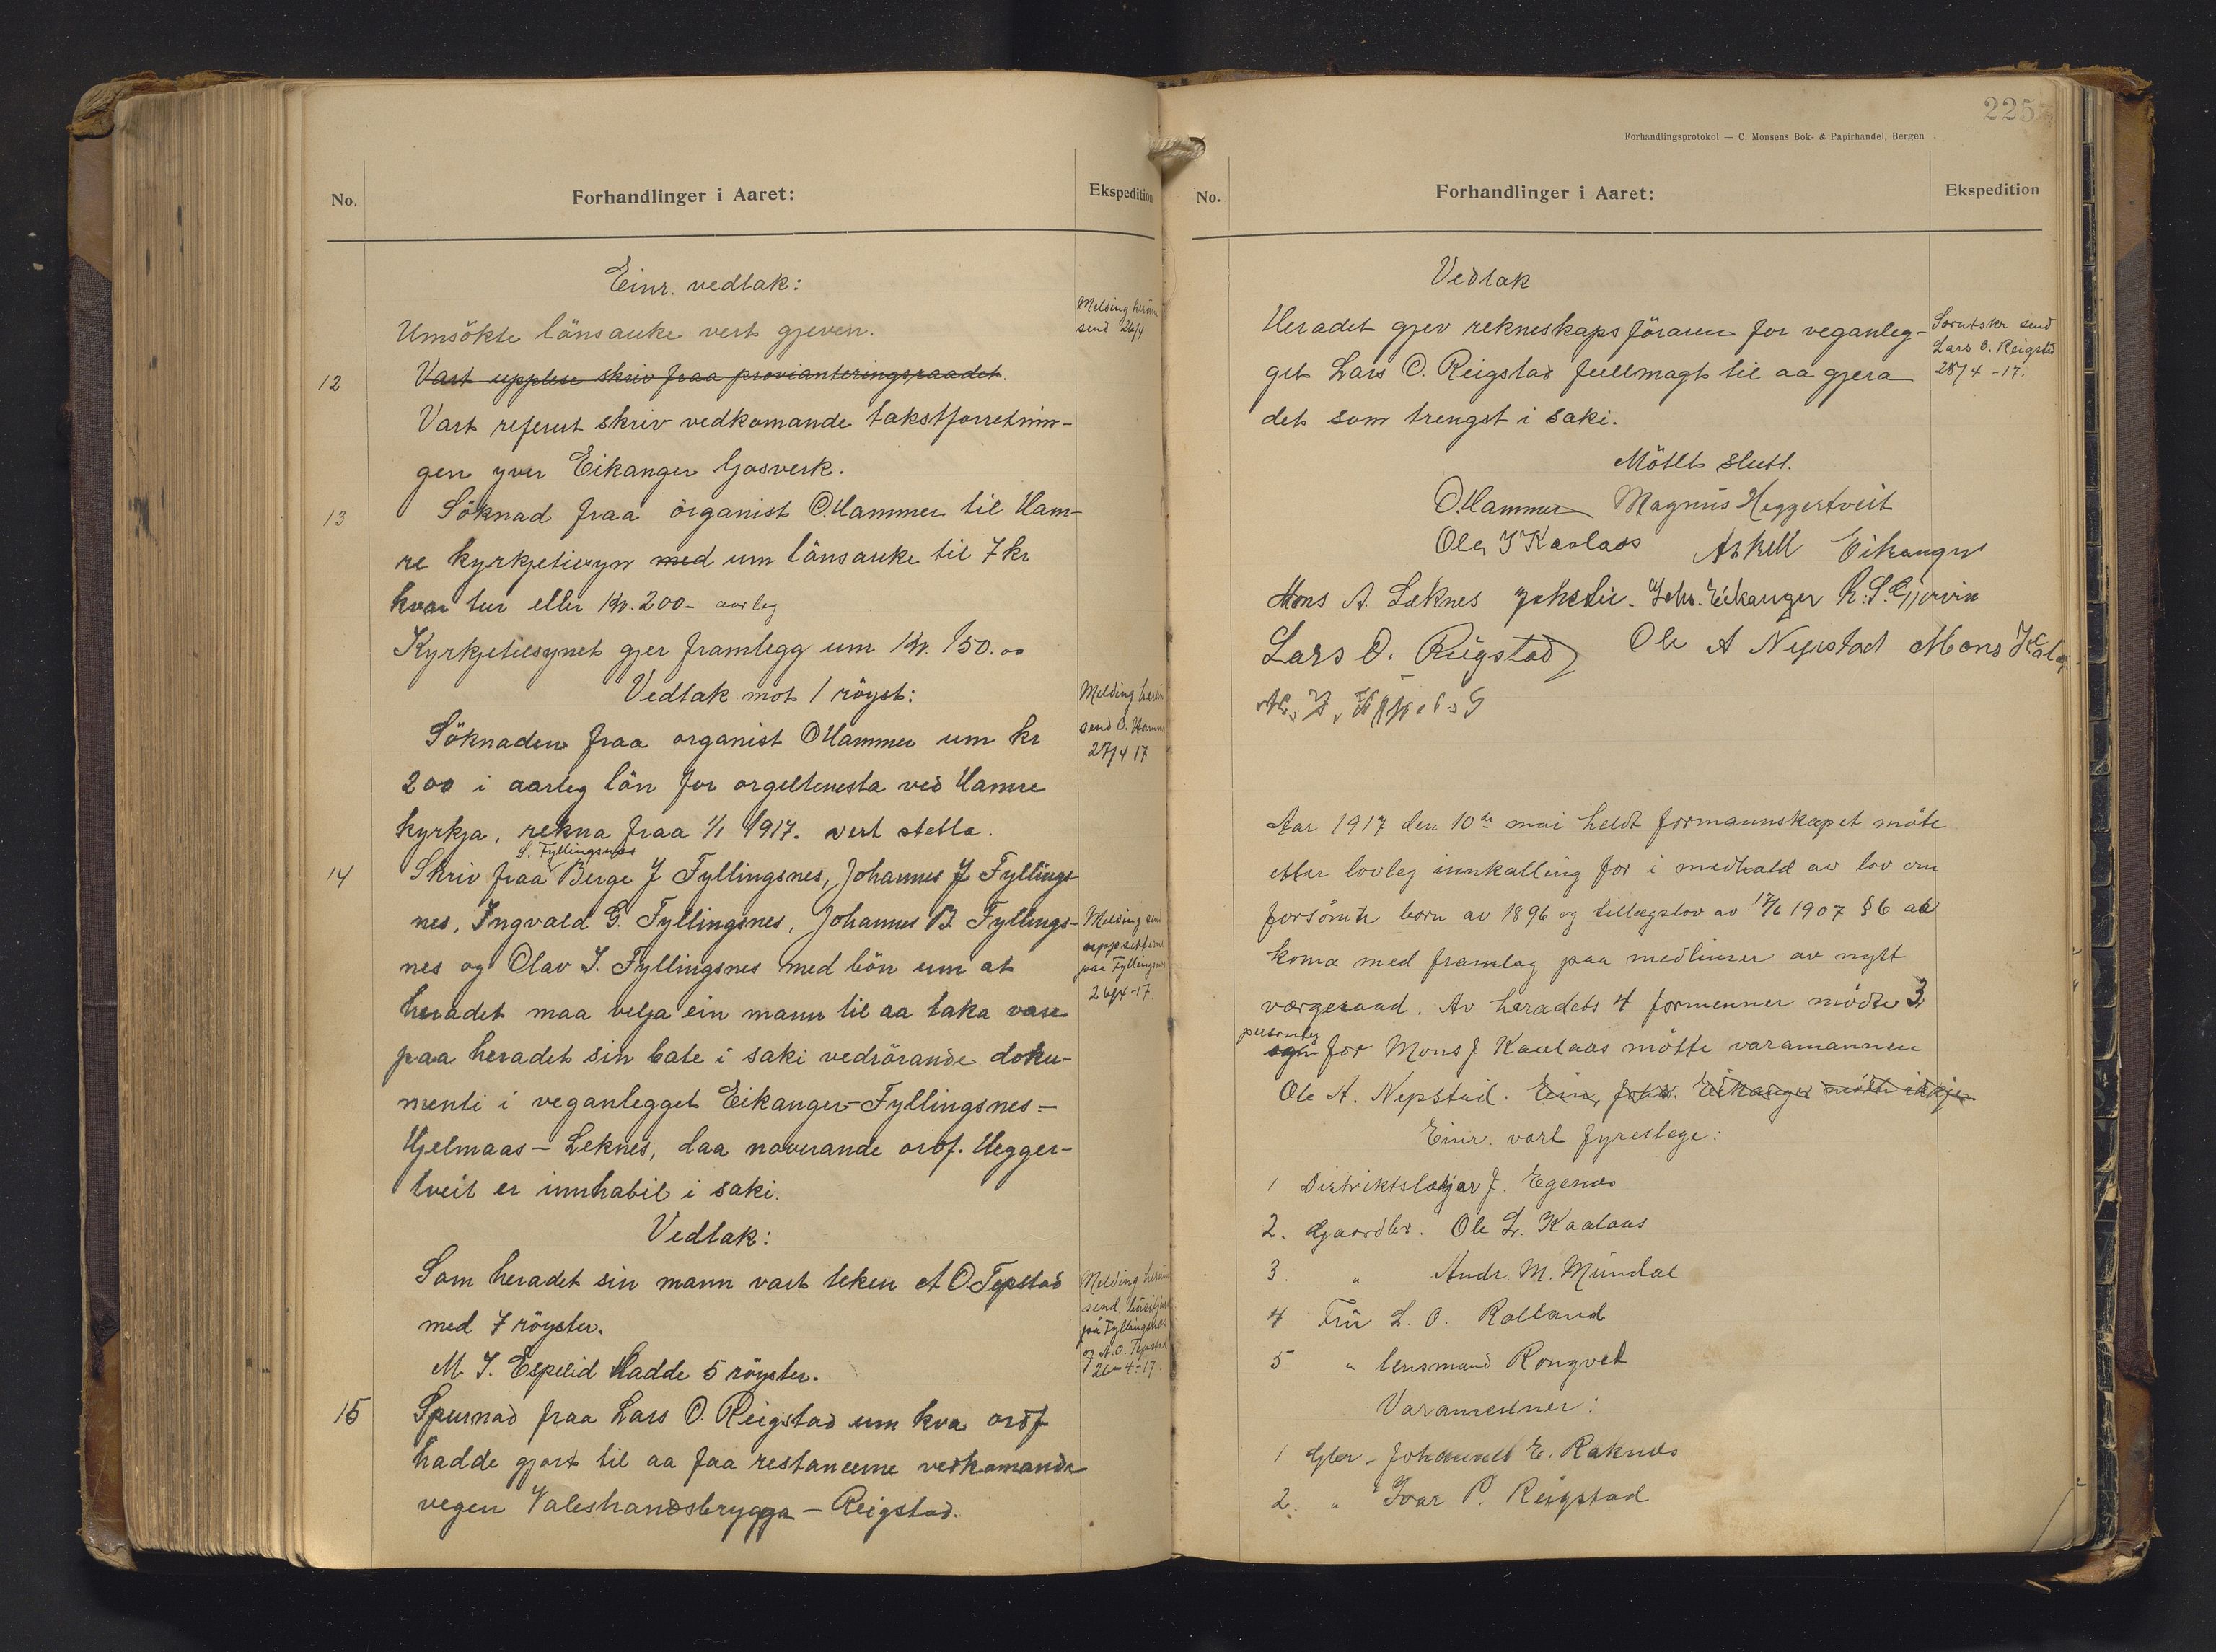 No.
Forhandlinger i Aaret:
Ekspedition
Einr. vedtak:
Umsökte lönsauke vert gjeven.
Melding herom
send 26/4
12
Vart upplese skriv fraa provianteringsraadet.
Vart referert skriv vedkomande takstforretnin-
gen yver Eikanger Gosverk.
13
Söknad fraa organist O. Hammer til Ham-
re kyrkjetilsyn med um lönsauke til 7 kr
hvar tur eller Kr. 200- aarleg
Kyrkjetilsynet gjer framlegg um Kr. 150.00
Vedtak mot 1 röyst:
Söknaden fraa organist O Hammer um kr
200 i aarleg lön for orgeltenesta ved Hamre
kyrkja, rekna fraa 1/1 1917. vert stetta.
Melding herum
send O. Hamm
27/4 17
S. Fyllingsnes
14
Skriv fraa Berge J Fyllingsnes, Johannes J Fyllings-
nes, Ingvald G. Fyllingsnes, Johannes B. Fyllings-
nes og Olav I. Fyllingsnes med bön um at
heradet maa velja ein mann til aa taka vare
paa heradet sin bate i saki vedrörande doku-
menti i veganlegget Eikanger-Fyllingsnes-
Hjelmaas - Leknes, daa noverande ordf. Hegger-
tveit er innhabil i saki.
Melding send
uppsitterne
paa Fyllingsnes
26/4-17.
Vedtak:
Som heradet sin mann vart teken A O. Tepstad
med 7 röyster.
M. I. Espelid Hadde 5 röyster.
Melding herum
send
paa Fyllingsnes
og A.O. Tepstad
26-4-17.
15
Spurnad fraa Lars O. Reigstad um kva ordf
hadde gjort til aa faa restancerne vedkomande
vegen Valeshandsbrygga - Reigstad.
225
Forhandlingsprotokol — C. Monsens Bok- & Papirhandel, Bergen
No.
Forhandlinger i Aaret:
Ekspedition
Vedtak
Heradet gjev rekneskapsföraren for veganleg-
get Lars O. Reigstad fullmagt til aa gjera
det som trengst i saki.
send
Lars O. Reigstad
28/4-17.
Mötet slutt.
O Hammer Magnus Heggertveit
Ole J Kaalaas Askell Eikanger
Mons A. Leknes Joh. Eikanger
Lars O. Reigstad Ole A Nepstad Mons
Aar 1917 den 10de mai heldt formannskapet möte
etter lovleg innkalling for i medhald av lov om
forsömte born av 1896 og tillegslov av 1907 § 6 aa
koma med framlag paa medlimer av nytt
vergeraad. Av heradets 4 formenner mödte 3
personleg
for Mons J Kaalaas mötte varamannen
Ole A. Nepstad. Ein, Johs. Eikanger mötte ikkje
Einr. vart fyreslege:
1 Distriktslækjar J. Egenæs
2. Gaardbr. Ole L. Kaalaas
3. " Andr. M. Mundal
4 Fru L. O. Rolland
5 " lensmand Rongved
Varamenner:
1 Gbr. Johannes E. Raknes
2. " Ivar P. Reigstad